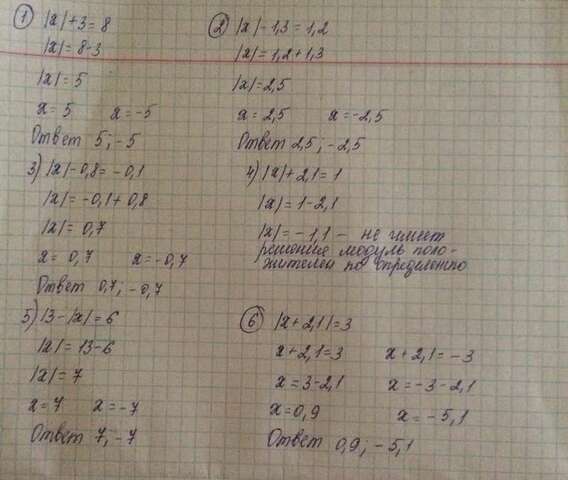 1 |x|+3=8
|x|=8-3
|x|=5
x=5 x=-5
Ответ 5; -5
2 |x|-1,3=1,2
|x|=1,2+1,3
|x|=2,5
x=2,5 x=-2,5
Ответ 2,5; -2,5
3) |x|-0,8=-0,1
|x|=-0,1+0,8
|x|=0,7
x=0,7 x=-0,7
Ответ 0,7; -0,7
4) |x|+2,1=1
|x|=1-2,1
|x|=-1,1 - не имеет
решения модуль поло-
жителен по определению
5) 13-|x|=6
|x|=13-6
|x|=7
x=7 x=-7
Ответ 7; -7
6 |x+2,1|=3
x+2,1=3 x+2,1=-3
x=3-2,1 x=-3-2,1
x=0,9 x=-5,1
Ответ 0,9; -5,1